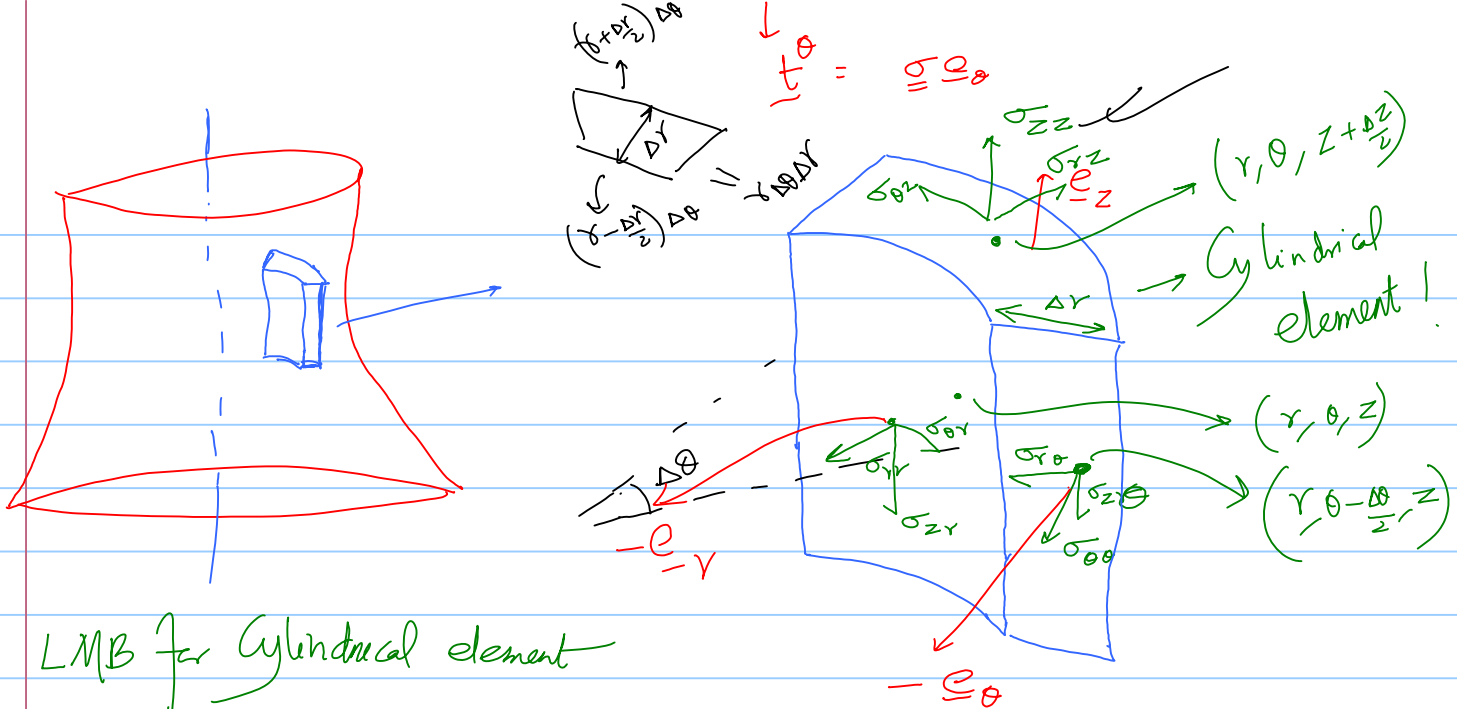 (r+Δr/2)Δθ
t^θ = σ e_θ
Δr
(r-Δr/2)Δθ
= rΔθΔr
σ_zz
σ_rz
σ_θz
e_z
(r, θ, z+Δz/2)
Cylindrical
element!
Δr
(r, θ, z)
Δθ
σ_θr
σ_rr
σ_zr
-e_r
σ_rθ
σ_zθ
σ_θθ
(r, θ-Δθ/2, z)
-e_θ
LMB for Cylindrical element